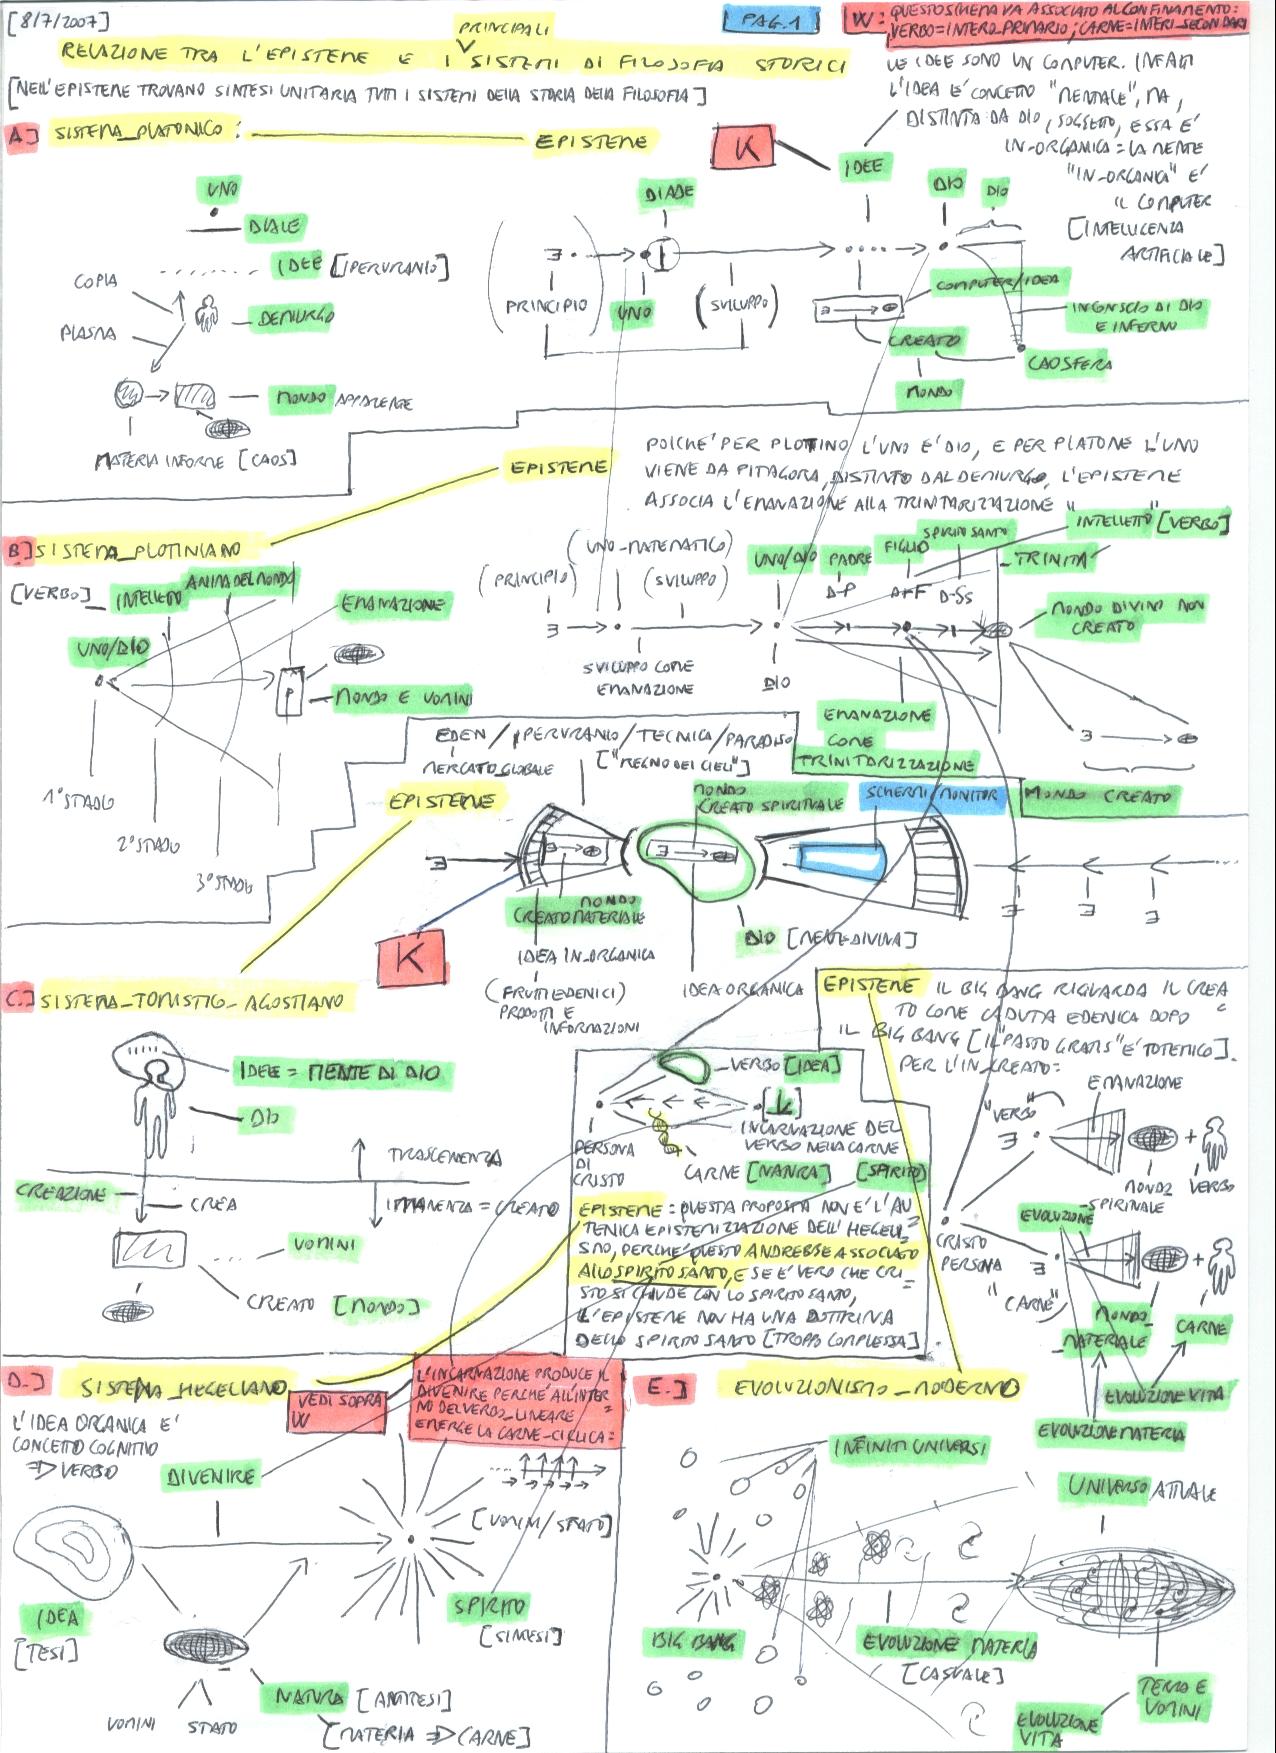 [8/7/2007]
PAG.1
W: QUESTO SCHEMA VA ASSOCIATO AL CONFINAMENTO:
VERBO=INTERO_PRIMARIO; CARNE=INTERI_SECONDARI
PRINCIPALI
RELAZIONE TRA L'EPISTEME E I SISTEMI DI FILOSOFIA STORICI
[NELL'EPISTEME TROVANO SINTESI UNITARIA TUTTI I SISTEMI DELLA STORIA DELLA FILOSOFIA]
LE IDEE SONO UN COMPUTER. INFATTI
L'IDEA E' CONCETTO "MENTALE", MA,
DISTINTA DA DIO, SOGGETTO, ESSA E'
IN-ORGANICA = LA MENTE
"IN-ORGANICA" E'
IL COMPUTER
[INTELLIGENZA
ARTIFICIALE]
A.] SISTEMA_PLATONICO:
EPISTEME
K
UNO
DUALE
IDEE [IPERURANIO]
COPIA
DEMIURGO
PLASMA
MONDO APPARENTE
MATERIA INFORME [CAOS]
DIADE
IDEE
DIO
DIO
(PRINCIPIO)
UNO
(SVILUPPO)
COMPUTER/IDEA
CREATO
MONDO
INCONSCIO DI DIO
E INFERNO
CAOSFERA
EPISTEME
POICHE' PER PLOTINO L'UNO E' DIO, E PER PLATONE L'UNO
VIENE DA PITAGORA, DISTINTO DAL DEMIURGO, L'EPISTEME
ASSOCIA L'EMANAZIONE ALLA TRINITARIZZAZIONE
B] SISTEMA_PLOTINIANO
[VERBO]_ INTELLETTO
ANIMA DEL MONDO
EMANAZIONE
UNO/DIO
P
MONDO E UOMINI
1° STADIO
2° STADIO
3° STADIO
(UNO-MATEMATICO)
(PRINCIPIO)
(SVILUPPO)
UNO/DIO
PADRE
FIGLIO
SPIRITO SANTO
INTELLETTO [VERBO]
TRINITA'
D-P
D-F
D-SS
MONDO DIVINO NON
CREATO
SVILUPPO COME
EMANAZIONE
DIO
EMANAZIONE
COME
TRINITARIZZAZIONE
MONDO CREATO
EDEN/IPERURANIO/TECNICA/PARADISO
MERCATO_GLOBALE
["REGNO DEI CIELI"]
EPISTEME
MONDO
CREATO SPIRITUALE
SCHERMI/MONITOR
MONDO
CREATO MATERIALE
DIO [MENTE-DIVINA]
K
IDEA IN_ORGANICA
(FRUTTI EDENICI)
PRODOTTI E
INFORMAZIONI
IDEA ORGANICA
C.] SISTEMA_TOMISTICO_AGOSTIANO
IDEE = MENTE DI DIO
DIO
TRASCENDENZA
CREAZIONE
CREA
IMMANENZA = CREATO
UOMINI
CREATO [MONDO]
EPISTEME IL BIG BANG RIGUARDA IL CREA
TO COME CADUTA EDENICA DOPO
IL BIG BANG [IL "PASTO GRATIS" E' TOTEMICO].
PER L'IN_CREATO:
VERBO [IDEA]
[K]
INCARNAZIONE DEL
VERBO NELLA CARNE
PERSONA
DI
CRISTO
CARNE [NATURA]
[SPIRITO]
EPISTEME: QUESTA PROPOSTA NON E' L'AU
TENICA EPISTEMIZZAZIONE DELL'HEGELI
SMO, PERCHE' QUESTO ANDREBBE ASSOCIATO
ALLO SPIRITO SANTO, E SE E' VERO CHE CRI
STO SI CHIUDE CON LO SPIRITO SANTO,
L'EPISTEME NON HA UNA DOTTRINA
DELLO SPIRITO SANTO [TROPPO COMPLESSA]
EMANAZIONE
"VERBO"
MONDO
SPIRITUALE
VERBO
EVOLUZIONE
CRISTO
PERSONA
"CARNE"
MONDO_
MATERIALE
CARNE
EVOLUZIONE VITA
EVOLUZIONE MATERIA
D.] SISTEMA_HEGELIANO
VEDI SOPRA
W
L'INCARNAZIONE PRODUCE IL
DIVENIRE PERCHE' ALL'INTER
NO DEL VERBO_LINEARE
EMERGE LA CARNE-CICLICA
L'IDEA ORGANICA E'
CONCETTO COGNITIVO
=> VERBO
DIVENIRE
[UOMINI/STATO]
SPIRITO
[SINTESI]
IDEA
[TESI]
NATURA [ANTITESI]
UOMINI STATO
[MATERIA => CARNE]
E.] EVOLUZIONISMO_MODERNO
INFINITI UNIVERSI
UNIVERSO ATTUALE
BIG BANG
EVOLUZIONE MATERIA
[CASUALE]
TERRA E
UOMINI
EVOLUZIONE
VITA